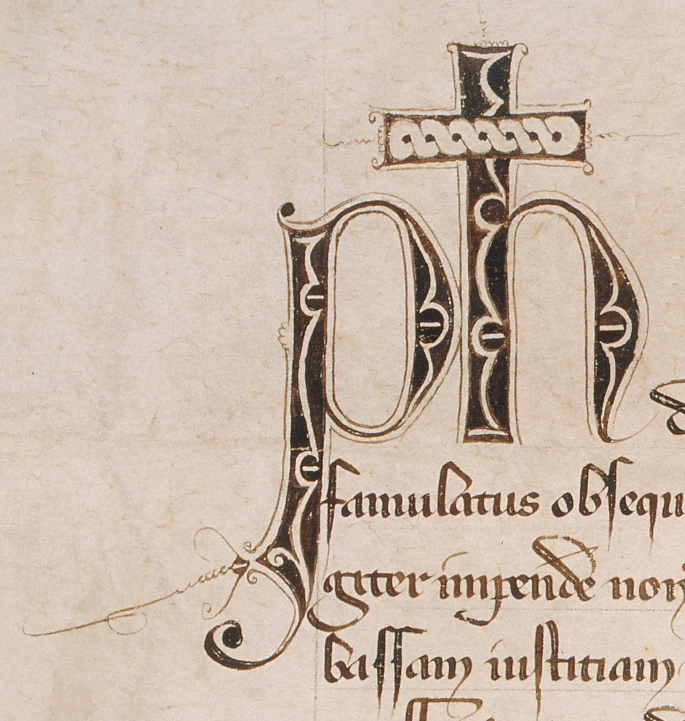 ph
famulatus obsequ
giter impende non
bassam iustitiam